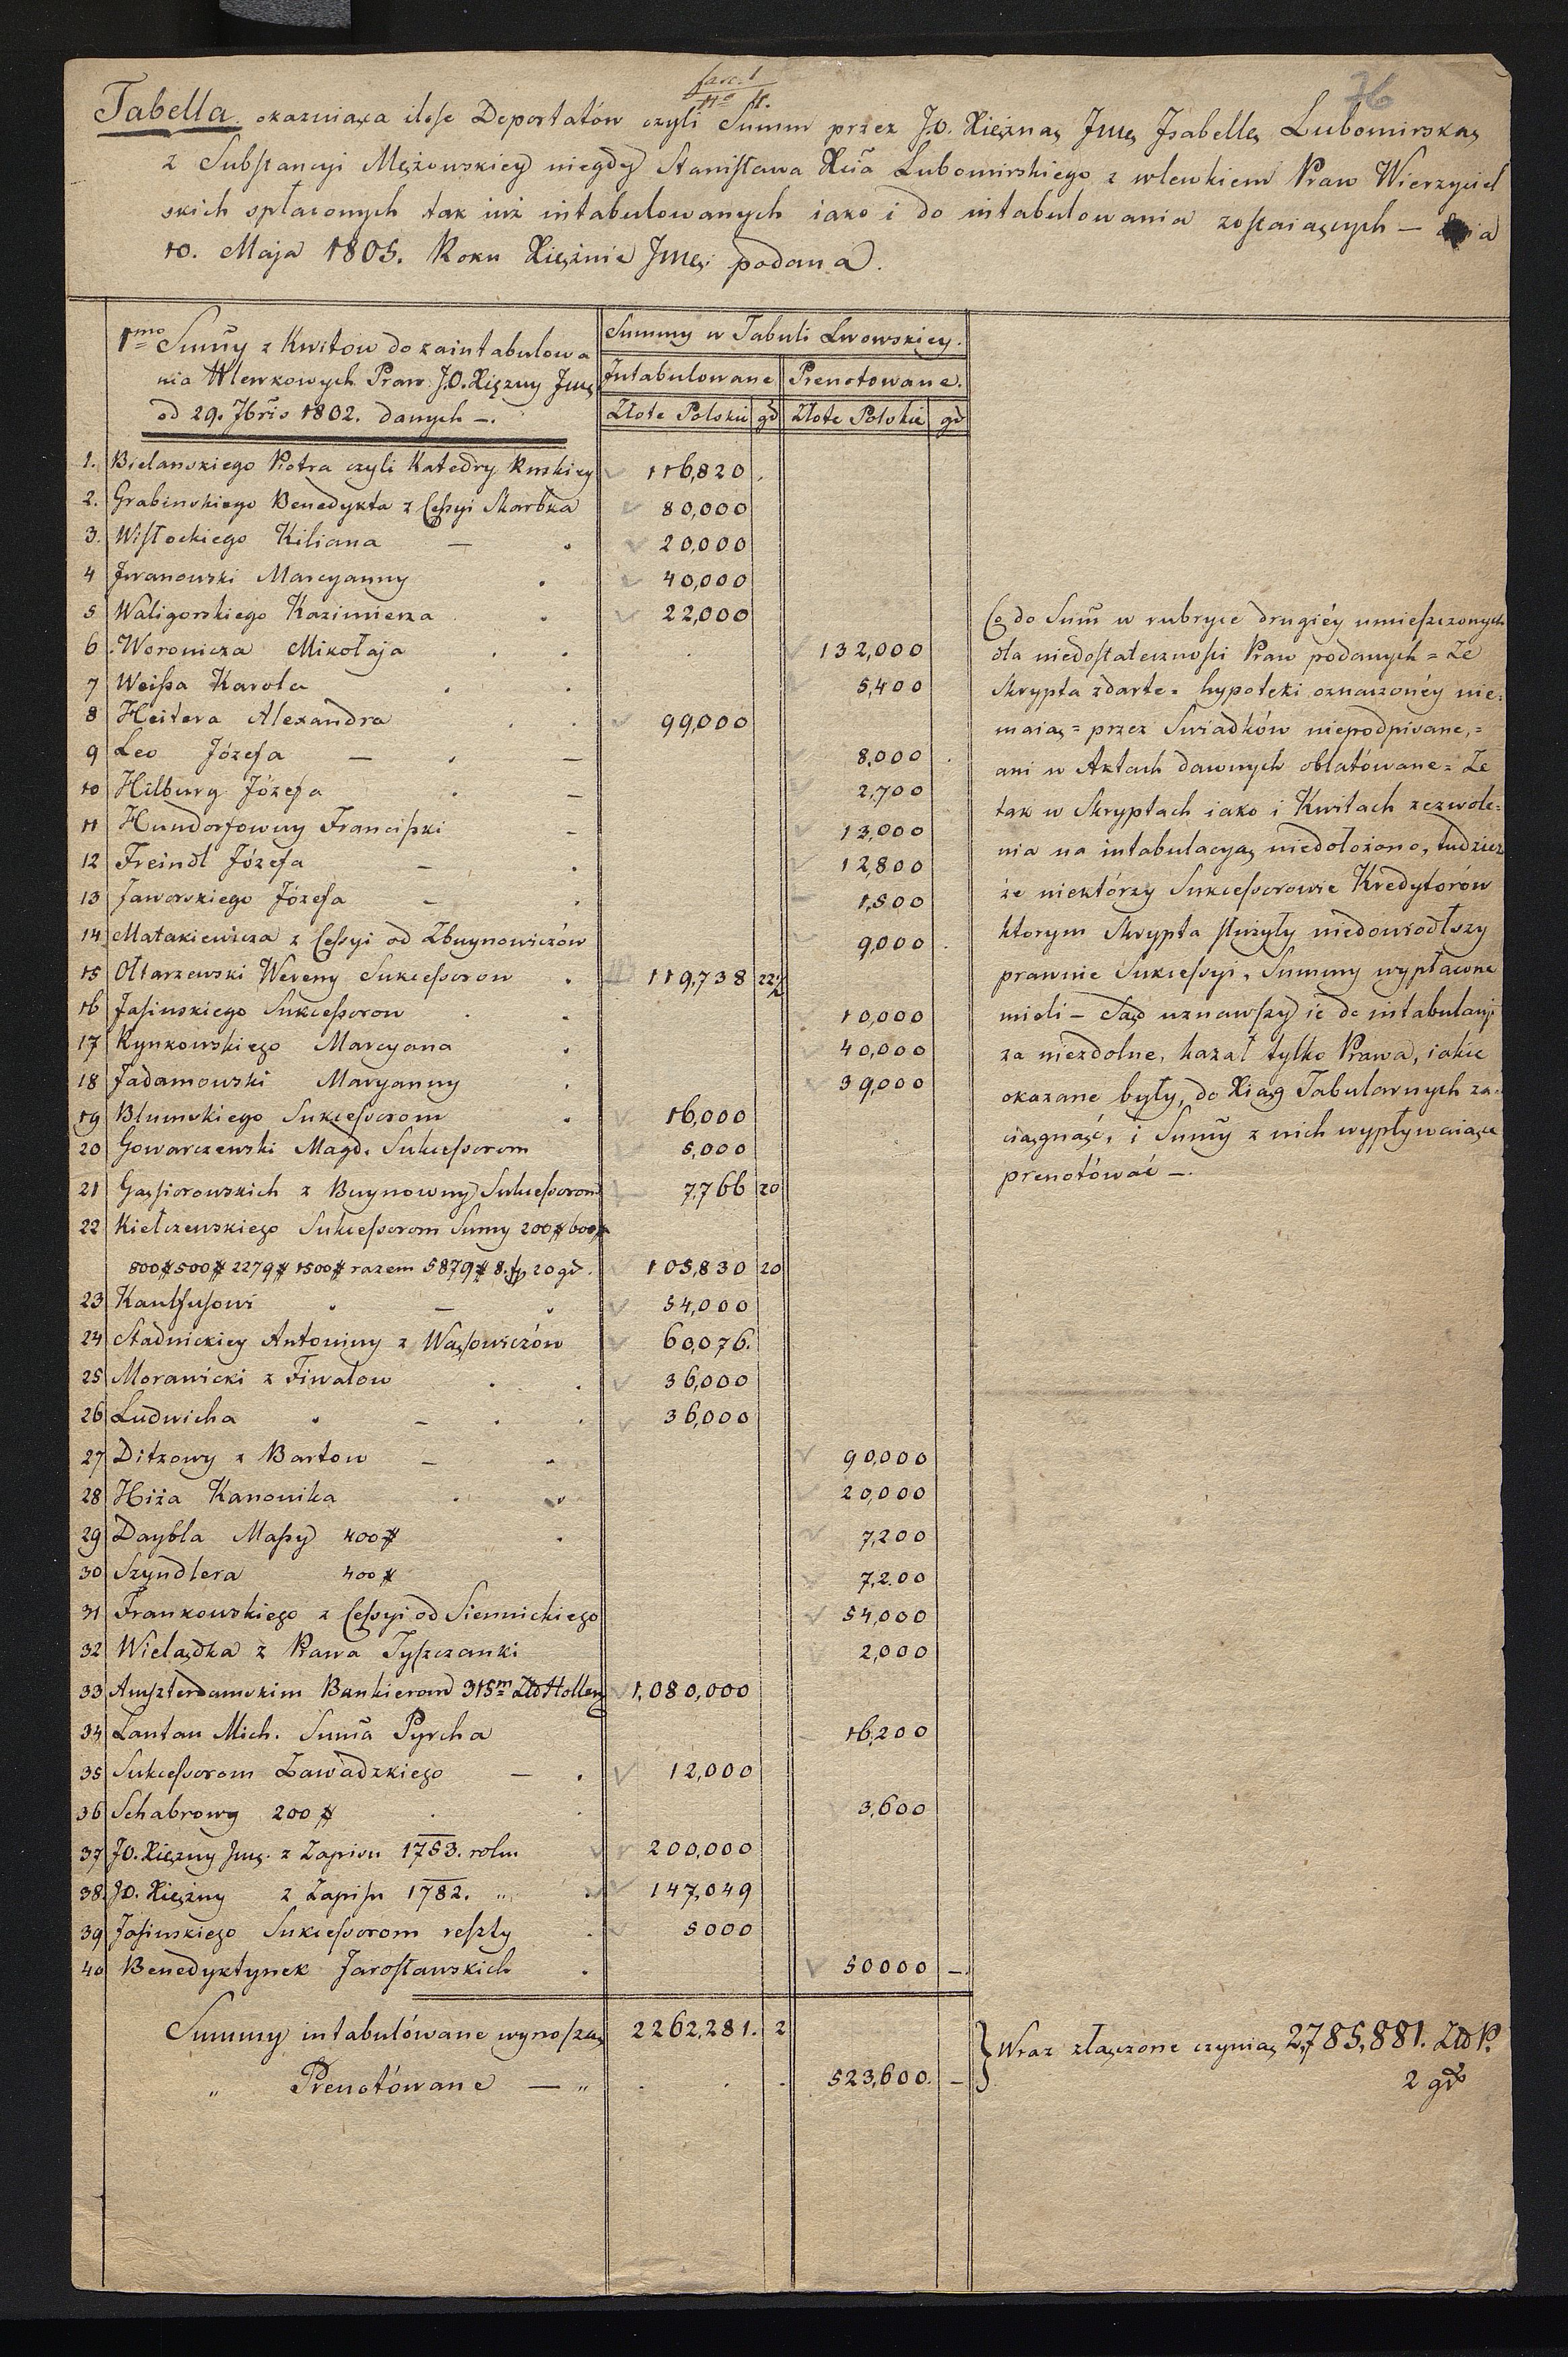 fasc. 1
76
N° 4.
Tabella okazuiąca ilość Deportatów czyli Summ przez J.O. Xiężnaę Jmę Jsabellę Lubomirskaę
z Substancyi Mężowskiey niegdy Stanisława Xcia Lubomirskiego z wlewkiem Praw Wierzyciel
skich spłaconych tak iuż intabulowanych iako i do intabulowania zostaiących — dnia
10. Maja 1805. Roku Xiężnie Jmęi podana.
1mo Summy z Kwitow do zaintabulowa
nia Wlewkowych Praw J.O. Xiężny Jmę
od 29. 7bris 1802. danych —.
Summy w Tabuli Lwowskiey.
Intabulowane Prenotowane.
Złote Polskie gr Złote Polskie gr
1. Bielanskiego Piotra czyli Katedry Ruskiey 116,820 .
2. Grabinskiego Benedykta z Cessyi Skarbka 80,000
3. Wisłockiego Kiliana — . 20,000
4 Jwanowski Marcyanny . 40,000
5 Waligorskiego Kazimierza . 22,000
6 Woronicza Mikołaja . . 132,000
7 Weissa Karola . . 5,400
8 Heitera Alexandra . . 99,000
9 Leo Józefa — . — 8,000 .
10 Hilburg Józefa . — 2,700
11 Hundorfowny Franciszki — 13,000
12 Freindl Józefa — . 12,800
13 Jaworskiego Józefa — . 1,500
14 Matakiewicza z Cessyi od Zbuynowiczów 9,000 .
15 Ołtarzewski Wereny Sukcessorow . 119,738 22½
16 Jasinskiego Sukcessorow . . 10,000
17 Rynkowskiego Marcyana . 40,000
18 Jadamowski Maryanny . 39,000
19 Blumskiego Sukcessorom . 16,000
20 Gowarczewski Magd. Sukcessorom 5,000
21 Gąsiorowskich z Buynowny Sukcessorom 7,766 20
22 Kiełczewskiego Sukcessorom Sumy 200# 600#
800# 500# 2279# 1500# razem 5879# 8. fp 20 gr. 105,830 20
23 Kaulfusowi . — . 54,000
24 Stadnickiey Antoniny z Wąsowiczów 60,076.
25 Morawicki z Fiwałow . . 36,000
26 Ludwicha . — . . 36,000
27 Ditzowy z Bartow — . 90,000
28 Hiża Kanonika . . 20,000
29 Daybla Massy 400# . 7,200
30 Szyndlera 400# 7,200
31 Frankowskiego z Cessyi od Siennickiego 54,000
32 Wielądka z Prawa Tyszczanki 2,000
33 Amszterdamskim Bankierom 315m Złd Hollen 1,080,000
34 Lantau Mich. Suma Pyrcha 16,200
35 Sukcessorom Zawadzkiego — . 12,000
36 Schabrowy 200# . . 3,600
37 J.O. Xiężny Jmę. z Zapisu 1753. roku 200,000
38. J.O. Xiężny z Zapisu 1782. „ . 147,049
39 Jasinskiego Sukcessorom reszty . 5000
40 Benedyktynek Jarosławskich . 50000 —.
Summy intabulówane wynoszą 2262,281. 2
„ Prenotówane — „ . . . 523,600. —
Co do Sum w rubryce drugiéy umieszczonych
dla niedostateczności Praw podanych = Że
Skrypta zdarte = hypoteki oznaczonéy nie=
maią = przez Swiadków niepodpisane, =
ani w Aktach dawnych oblatówane = Że
tak w Skryptach iako i Kwitach zezwole=
nia na intabulacyą niedołożono, tudzież
że niektórzy Sukcessorowie Kredytorów
ktorym Skrypta służyły niedowiodłszy
prawnie Sukcessyi, Summy wypłacone
mieli — Sąd uznawszy ie do intabulacyi
za niezdolne, kazał tylko Prawa, iakie
okazane były, do Xiąg Tabularnych za=
ciągnąć, i Sumy z nich wypływaiące
prenotówać —.
Wraz złączone czynią 2,785,881. Złd P.
2 gr